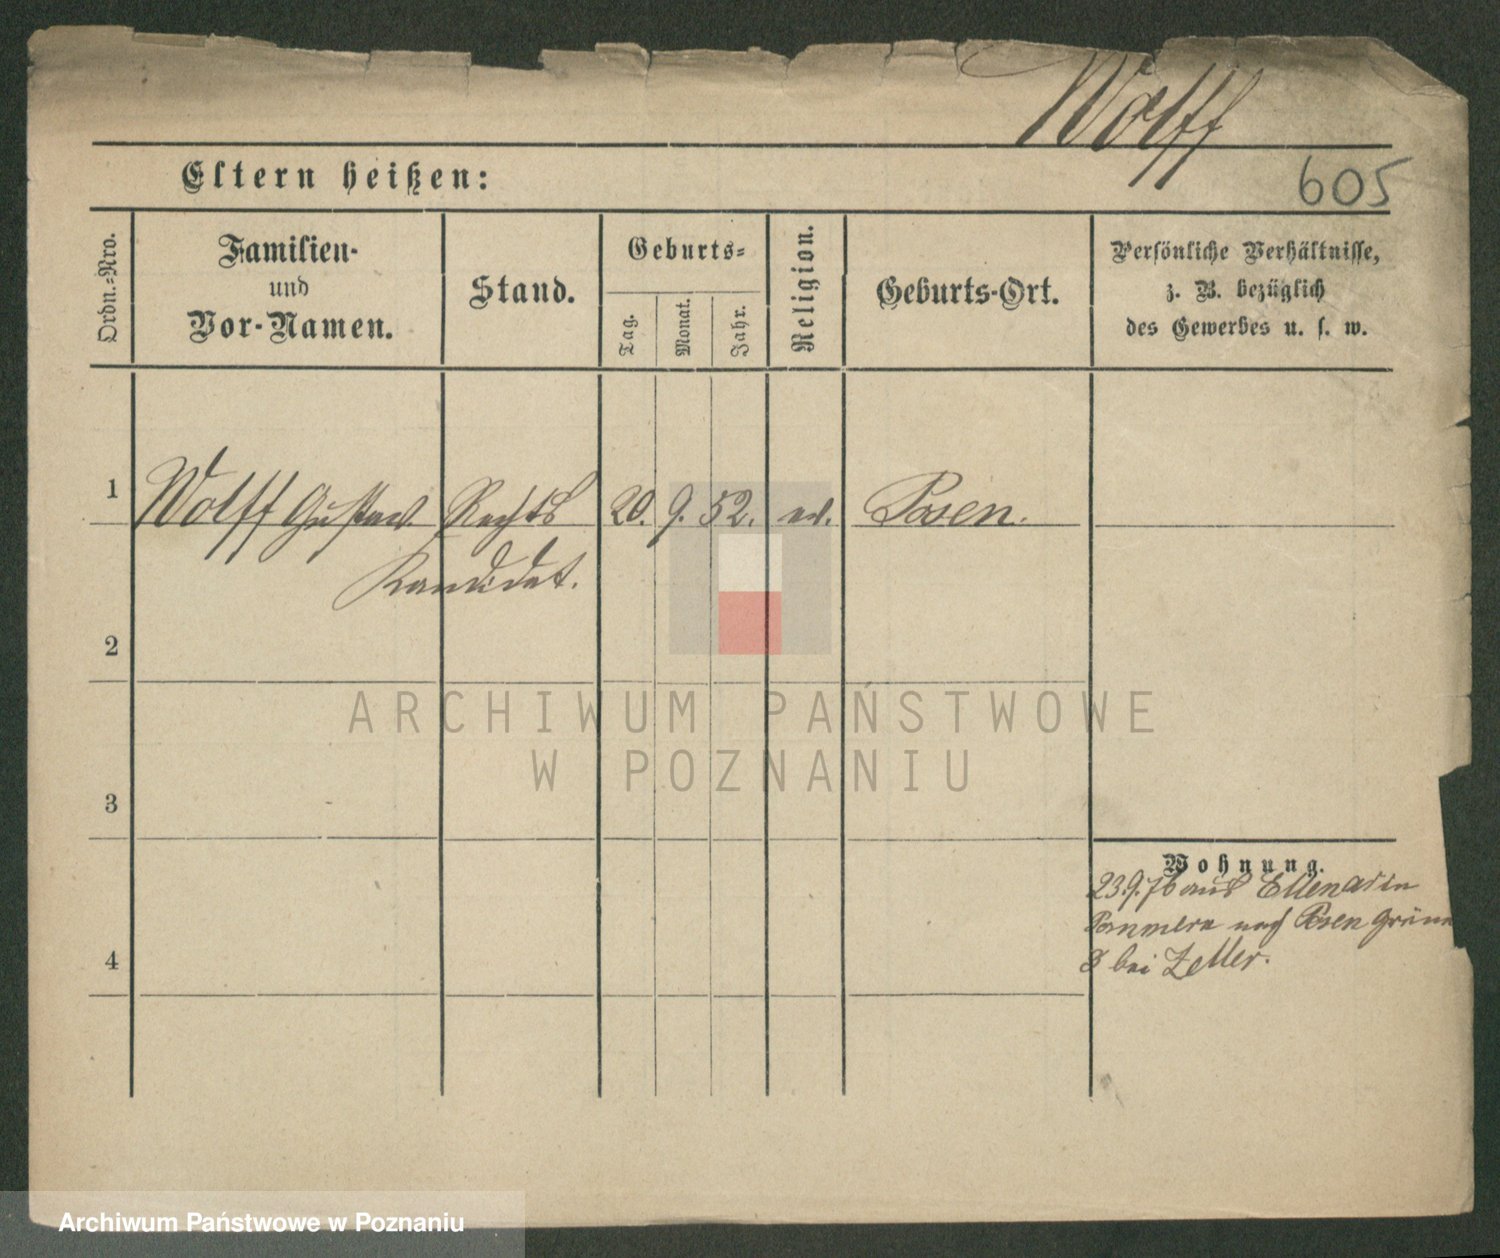 Wolff
605
Eltern heißen:
Ordn.-Nro.
Familien-
und
Vor-Namen.
Stand.
Geburts-
Tag.
Monat.
Jahr.
Religion.
Geburts-Ort.
Persönliche Verhältnisse,
z. B. bezüglich
des Gewerbes u. s. w.
1 Wolff Gustav. Rechts 20. 9. 52. ev. Posen.
Kandidat.
2
ARCHIWUM PAŃSTWOWE
W POZNANIU
3
Wohnung.
23.9.76 aus in
Pommern nach Posen Grüne
8 bei Zeller.
4
Archiwum Państwowe w Poznaniu